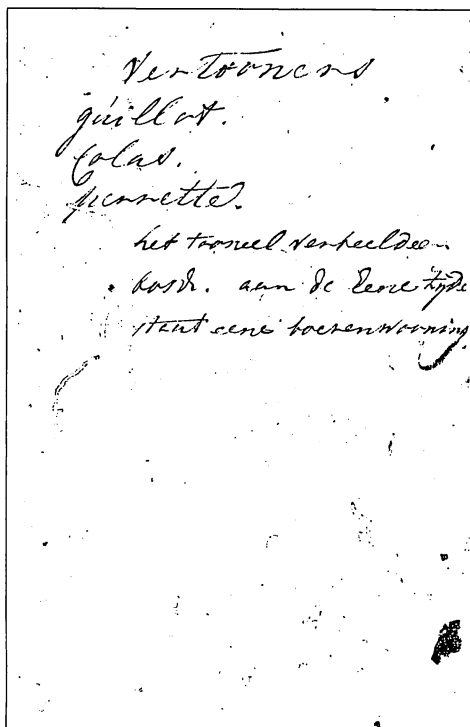 Vertoonens
guillot.
Colas.
pierrette.
het tooneel verbeeld een
bosch. aan de Eene zyde
staat eene boerenwooning